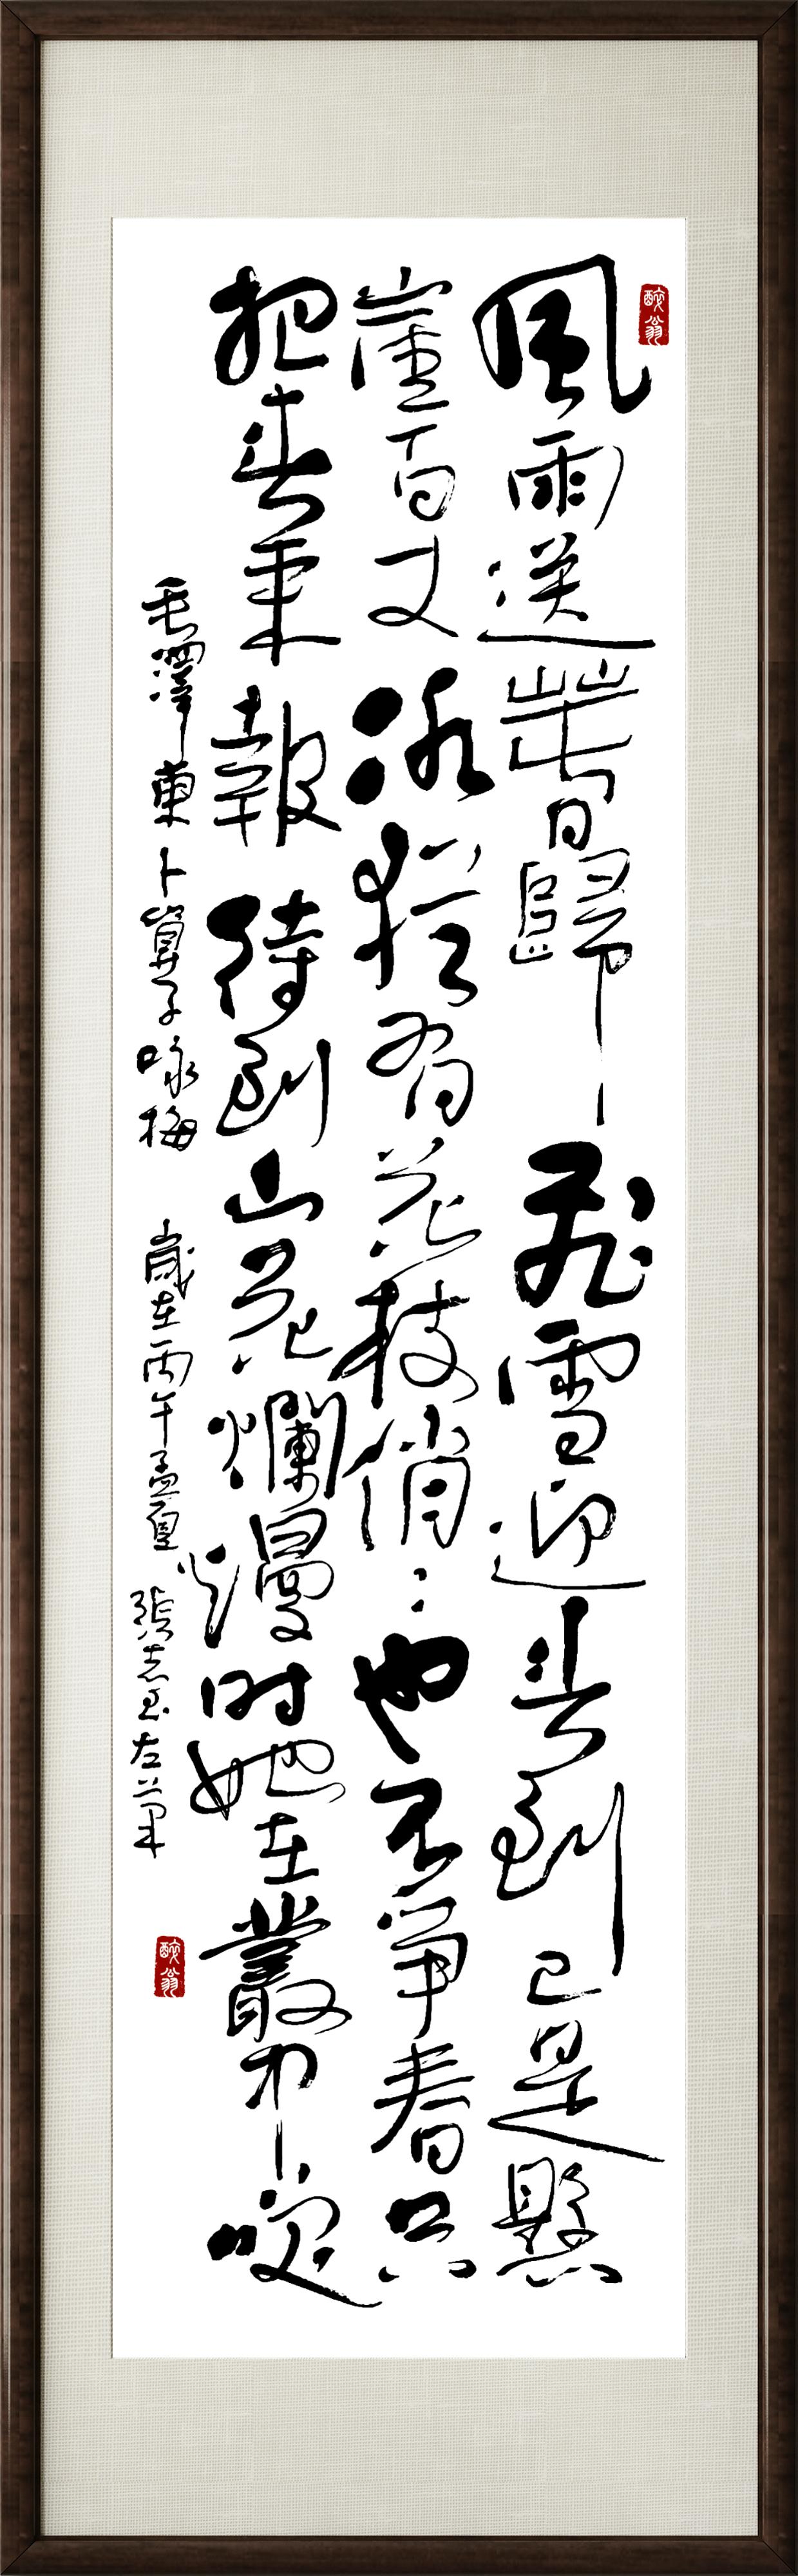 醉翁
風雨送萅歸飛雪迎春到已是懸
崖百丈冰猶有花枝俏〻也不爭春只
把春來報待到山花爛熳时她在叢中咲
毛澤東卜算子咏梅 歲在丙午孟夏 張志左筆
醉翁